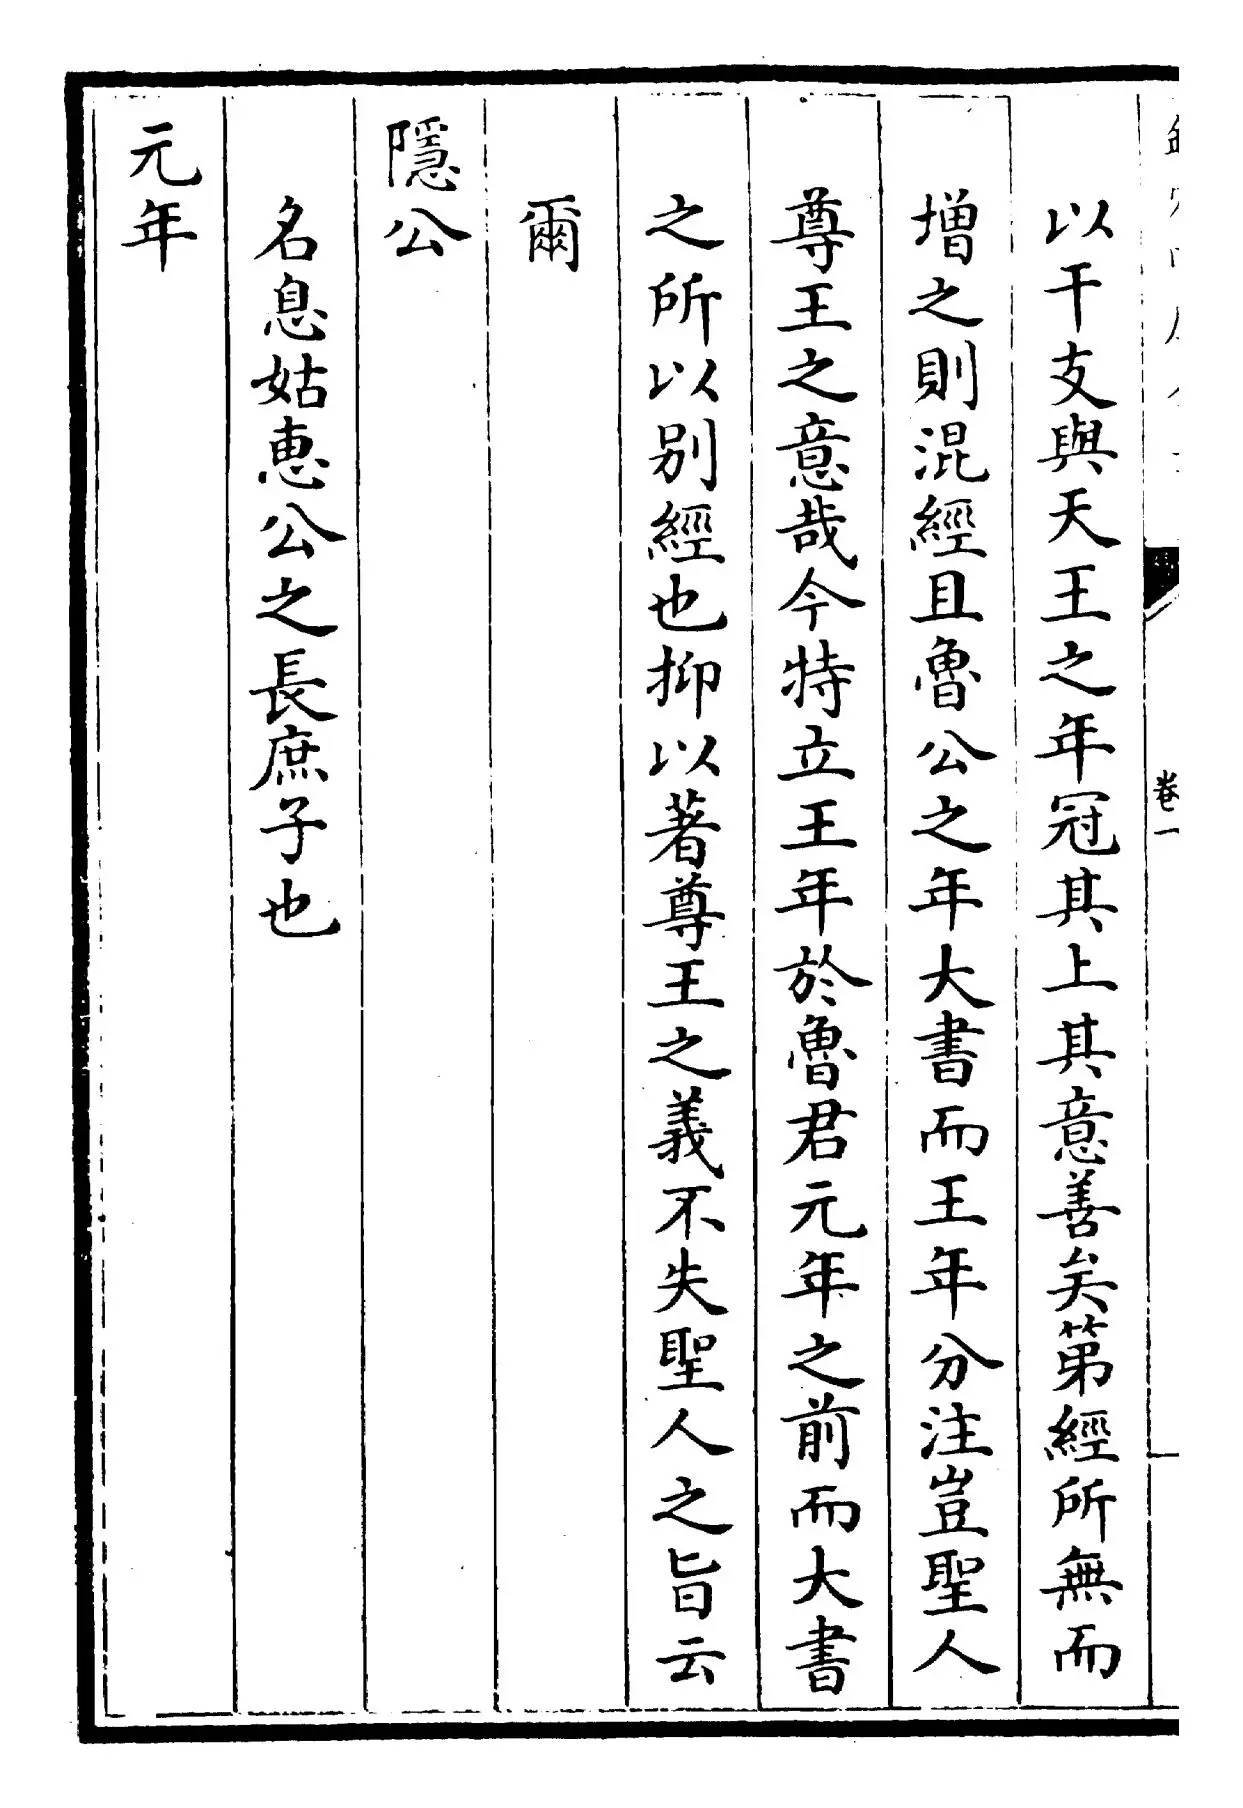 以干支與天王之年冠其上其意善矣第經所無而
增之則混經且魯公之年大書而王年分注豈聖人
尊王之意哉今特立王年於魯君元年之前而大書
之所以別經也抑以著尊王之義不失聖人之旨云
爾
隱公
名息姑惠公之長庶子也
元年
卷一